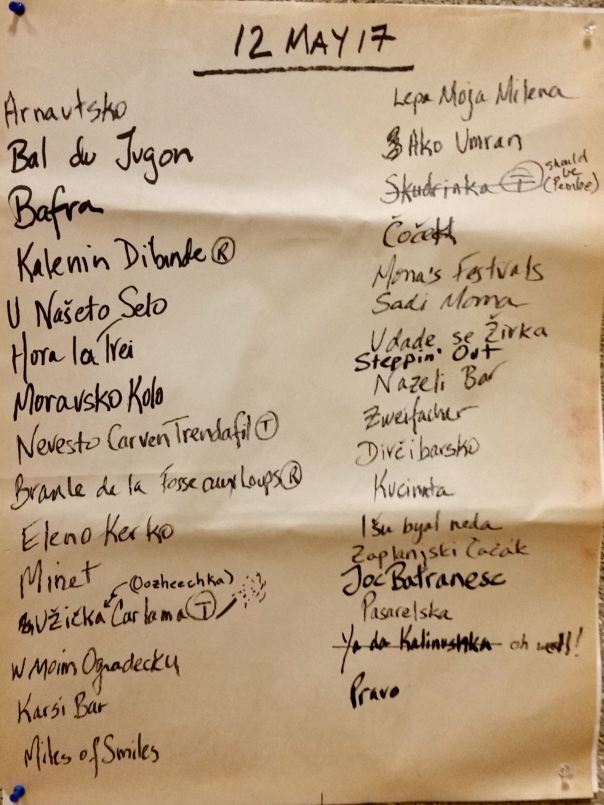 12 MAY 17
Arnautsko
Bal du Jugon
Bafra
Kalenin Dibinde Ⓡ
U Našeto Selo
Hora la Trei
Moravsko Kolo
Nevesto Carven Trendafil Ⓣ
Branle de la Fosse aux Loups Ⓡ
Eleno Kerko
Minet
(Oozheechka)
Užička Carlama Ⓣ
W Moim Ogradecku
Karsi Bar
Miles of Smiles
Lepa Moja Milena
Ako Umram
Skudrinka Ⓣ should be (Pembe)
Čoček
Mona's Festivals
Sadi Moma
Udade se Žirka
Steppin' Out
Nazeli Bar
Zweifacher
Dirčibarsko
Kucinata
Išu byal neda
Zaplanjski Čačak
Joc Batranesc
Pasarelska
Ya da Kalinushka oh well!
Pravo